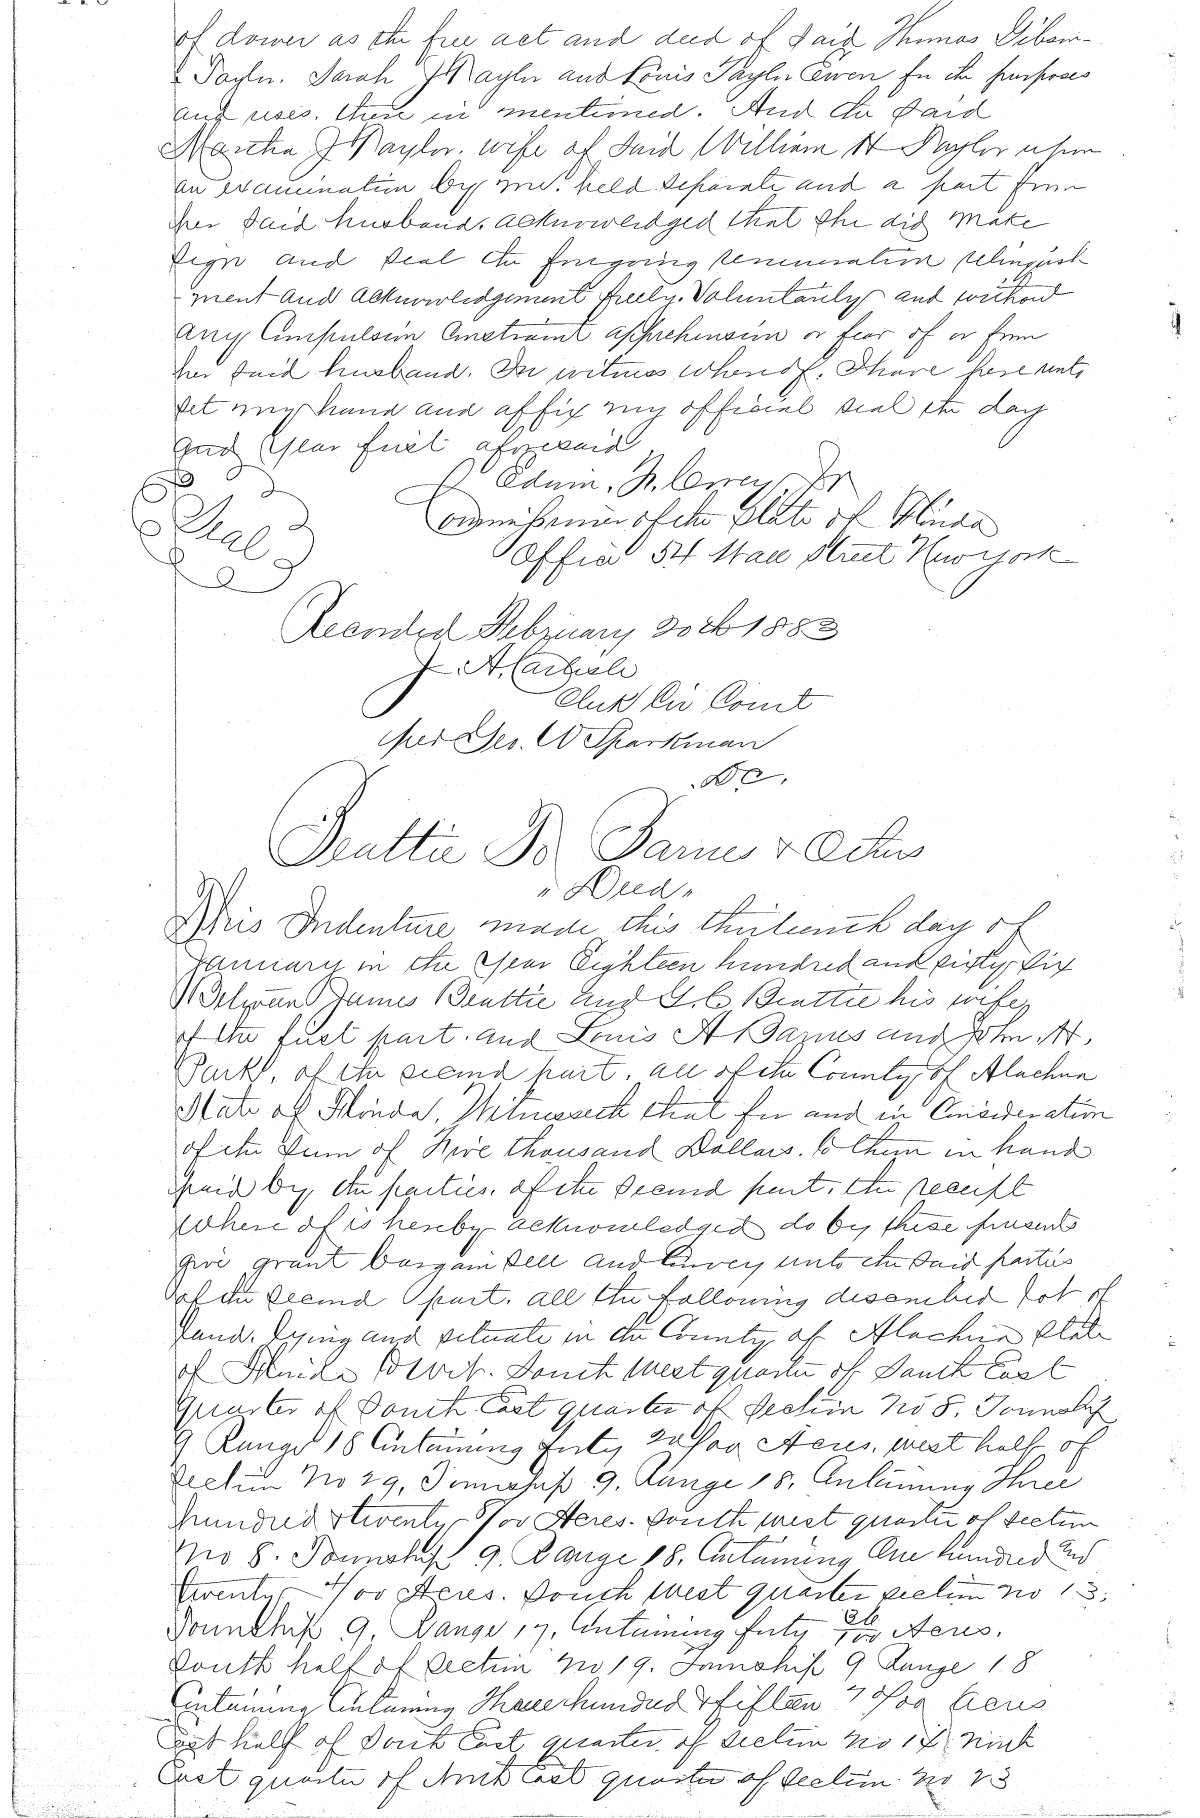 of dower as the free act and deed of said Thomas Gibson
& Taylor. Sarah J Naylor and Louis Taylor Ewen for the purposes
and uses. there in mentioned. And the said
Martha J Naylor. wife of said William H Naylor upon
an examination by me. held separate and a part from
her said husband. acknowledged that she did make
sign and seal the foregoing renunciation relinquish
ment and acknowledgement freely. Voluntarily and without
any Compulsion Constraint apprehension or fear of or from
her said husband. In witness whereof. I have here unto
set my hand and affix my official seal the day
and year first aforesaid
Edwin. F. Corey, Jr
Seal
Commissioner of the State of Florida
Office 54 Wall Street New york
Recorded February 20th 1883
J A. Carlisle
Clerk Cir Court
per Geo. W Sparkman
DC.
Beattie To Barnes & Others
"Deed"
This Indenture made this thirteenth day of
January in the year Eighteen hundred and sixty six
Between James Beattie and G. C Beattie his wife
of the first part. and Louis A Barnes and John. H.
Park, of the second part. all of the County of Alachua
State of Florida. Witnesseth that for and in Consideration
of the sum of Five thousand Dollars. to them in hand
paid by the parties. of the second part. the receipt
where of is hereby acknowledged do by these presents
give grant bargain sell and Convey unto the said parties
of the second part. all the following described lot of
land. lying and situate in the County of Alachua State
of Florida to wit. South west quarter of South East
Quarter of South East quarter of Section No 8. Township
9 Range 18 Containing forty 20/00 Acres. west half of
Section No 29, Township 9. Range 18. Containing Three
hundred & twenty /00 Acres. South west quarter of section
No 8. Township 9. Range 18. Containing One hundred and
twenty /00 Acres. South west quarter section no 13.
Township 9. Range 17. Containing forty 36/100 Acres.
South half of Section No 19. Township 9 Range 18
Containing Containing Three hundred & fifteen 70/00 Acres
East half of South East quarter of section No 14 North
East quarter of North East quarter of Section. No 23